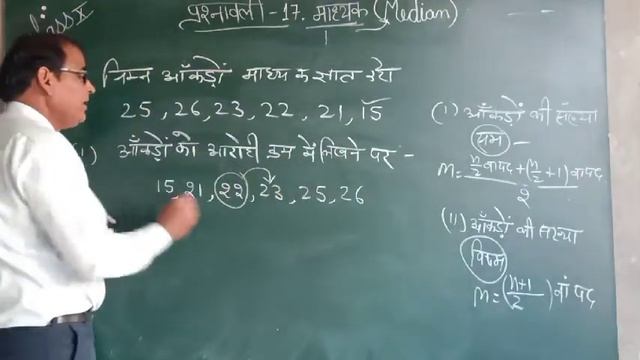 Class X
प्रश्नावली - 17. माध्यक (Median)
निम्न आँकड़ों माध्यक ज्ञात
25, 26, 23, 22, 21, 15
(1) आँकड़ों को आरोही क्रम में लिखने पर -
15, 21, 22, 23, 25, 26
(I) आँकड़ों की संख्या
सम -
M = n/2 वां पद + (n/2 + 1) वां पद / 2
(II) आँकड़ों की संख्या
विषम
M = (n+1/2) वां पद